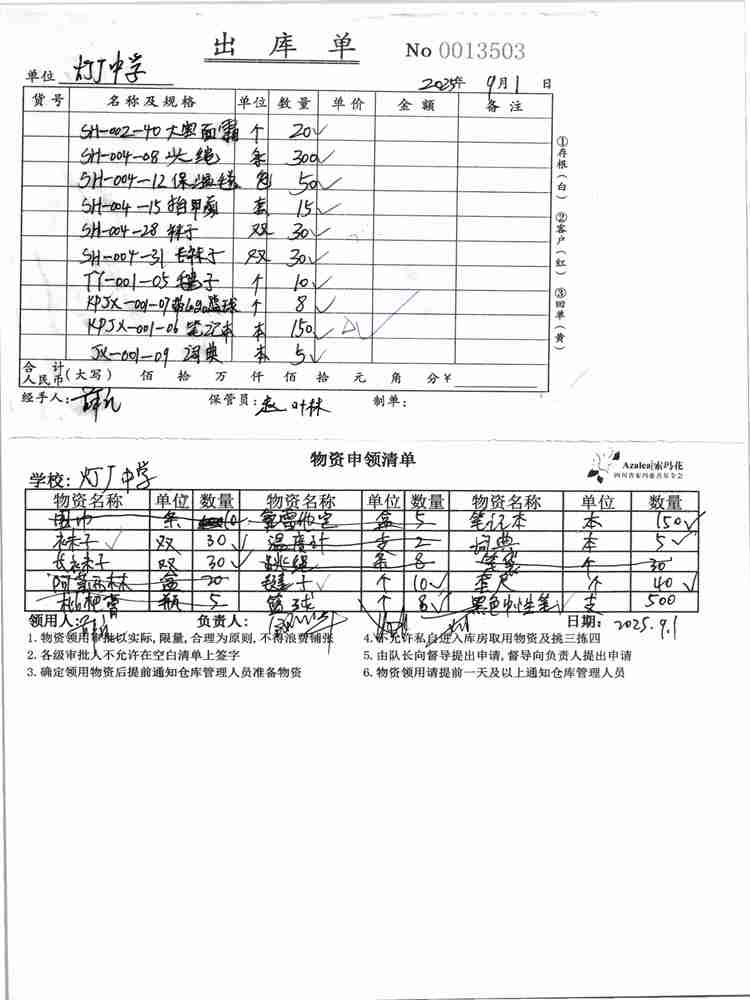 出库单 No 0013503
单位 灯厂中学 2025年 9月1日
货号 名称及规格 单位 数量 单价 金额 备注
SH-002-40 大宝面霜 个 20✓
SH-004-08 头绳 条 300✓
SH-004-12 保温毯 50✓
SH-004-15 指甲剪 套 15✓
SH-004-28 袜子 双 30✓
SH-004-31 长袜子 双 30✓
TY-001-05 毽子 个 10✓
KPJX-001-07 带logo篮球 个 8✓
KPJX-001-06 笔记本 本 150✓
JX-001-09 词典 本 5✓
合计人民币(大写) 佰 拾 万 仟 佰 拾 元 角 分¥
经手人: 保管员: 叶林 制单:
①存根(白) ②客户(红) ③回单(黄)
物资申领清单
Azalea|索玛花
四川省索玛慈善基金会
学校: 灯厂中学
物资名称 单位 数量 物资名称 单位 数量 物资名称 单位 数量
围巾 条 10 盒 5 笔记本 本 150✓
袜子✓ 双 30✓ 温度计 支 2 词典 本 5✓
长袜子 双 30✓ 跳绳 条 8 笔袋 个 30
阿莫西林 盒 20 毽子✓ 个 10✓ 套尺 个 40✓
枇杷膏 瓶 5 篮球 个 8✓ 黑色中性笔✓ 支 500
领用人: 负责人: 日期: 2025.9.1
1.物资领用审批以实际,限量,合理为原则,不得浪费铺张 4.不允许私自进入库房取用物资及挑三拣四
2.各级审批人不允许在空白清单上签字 5.由队长向督导提出申请,督导向负责人提出申请
3.确定领用物资后提前通知仓库管理人员准备物资 6.物资领用请提前一天及以上通知仓库管理人员